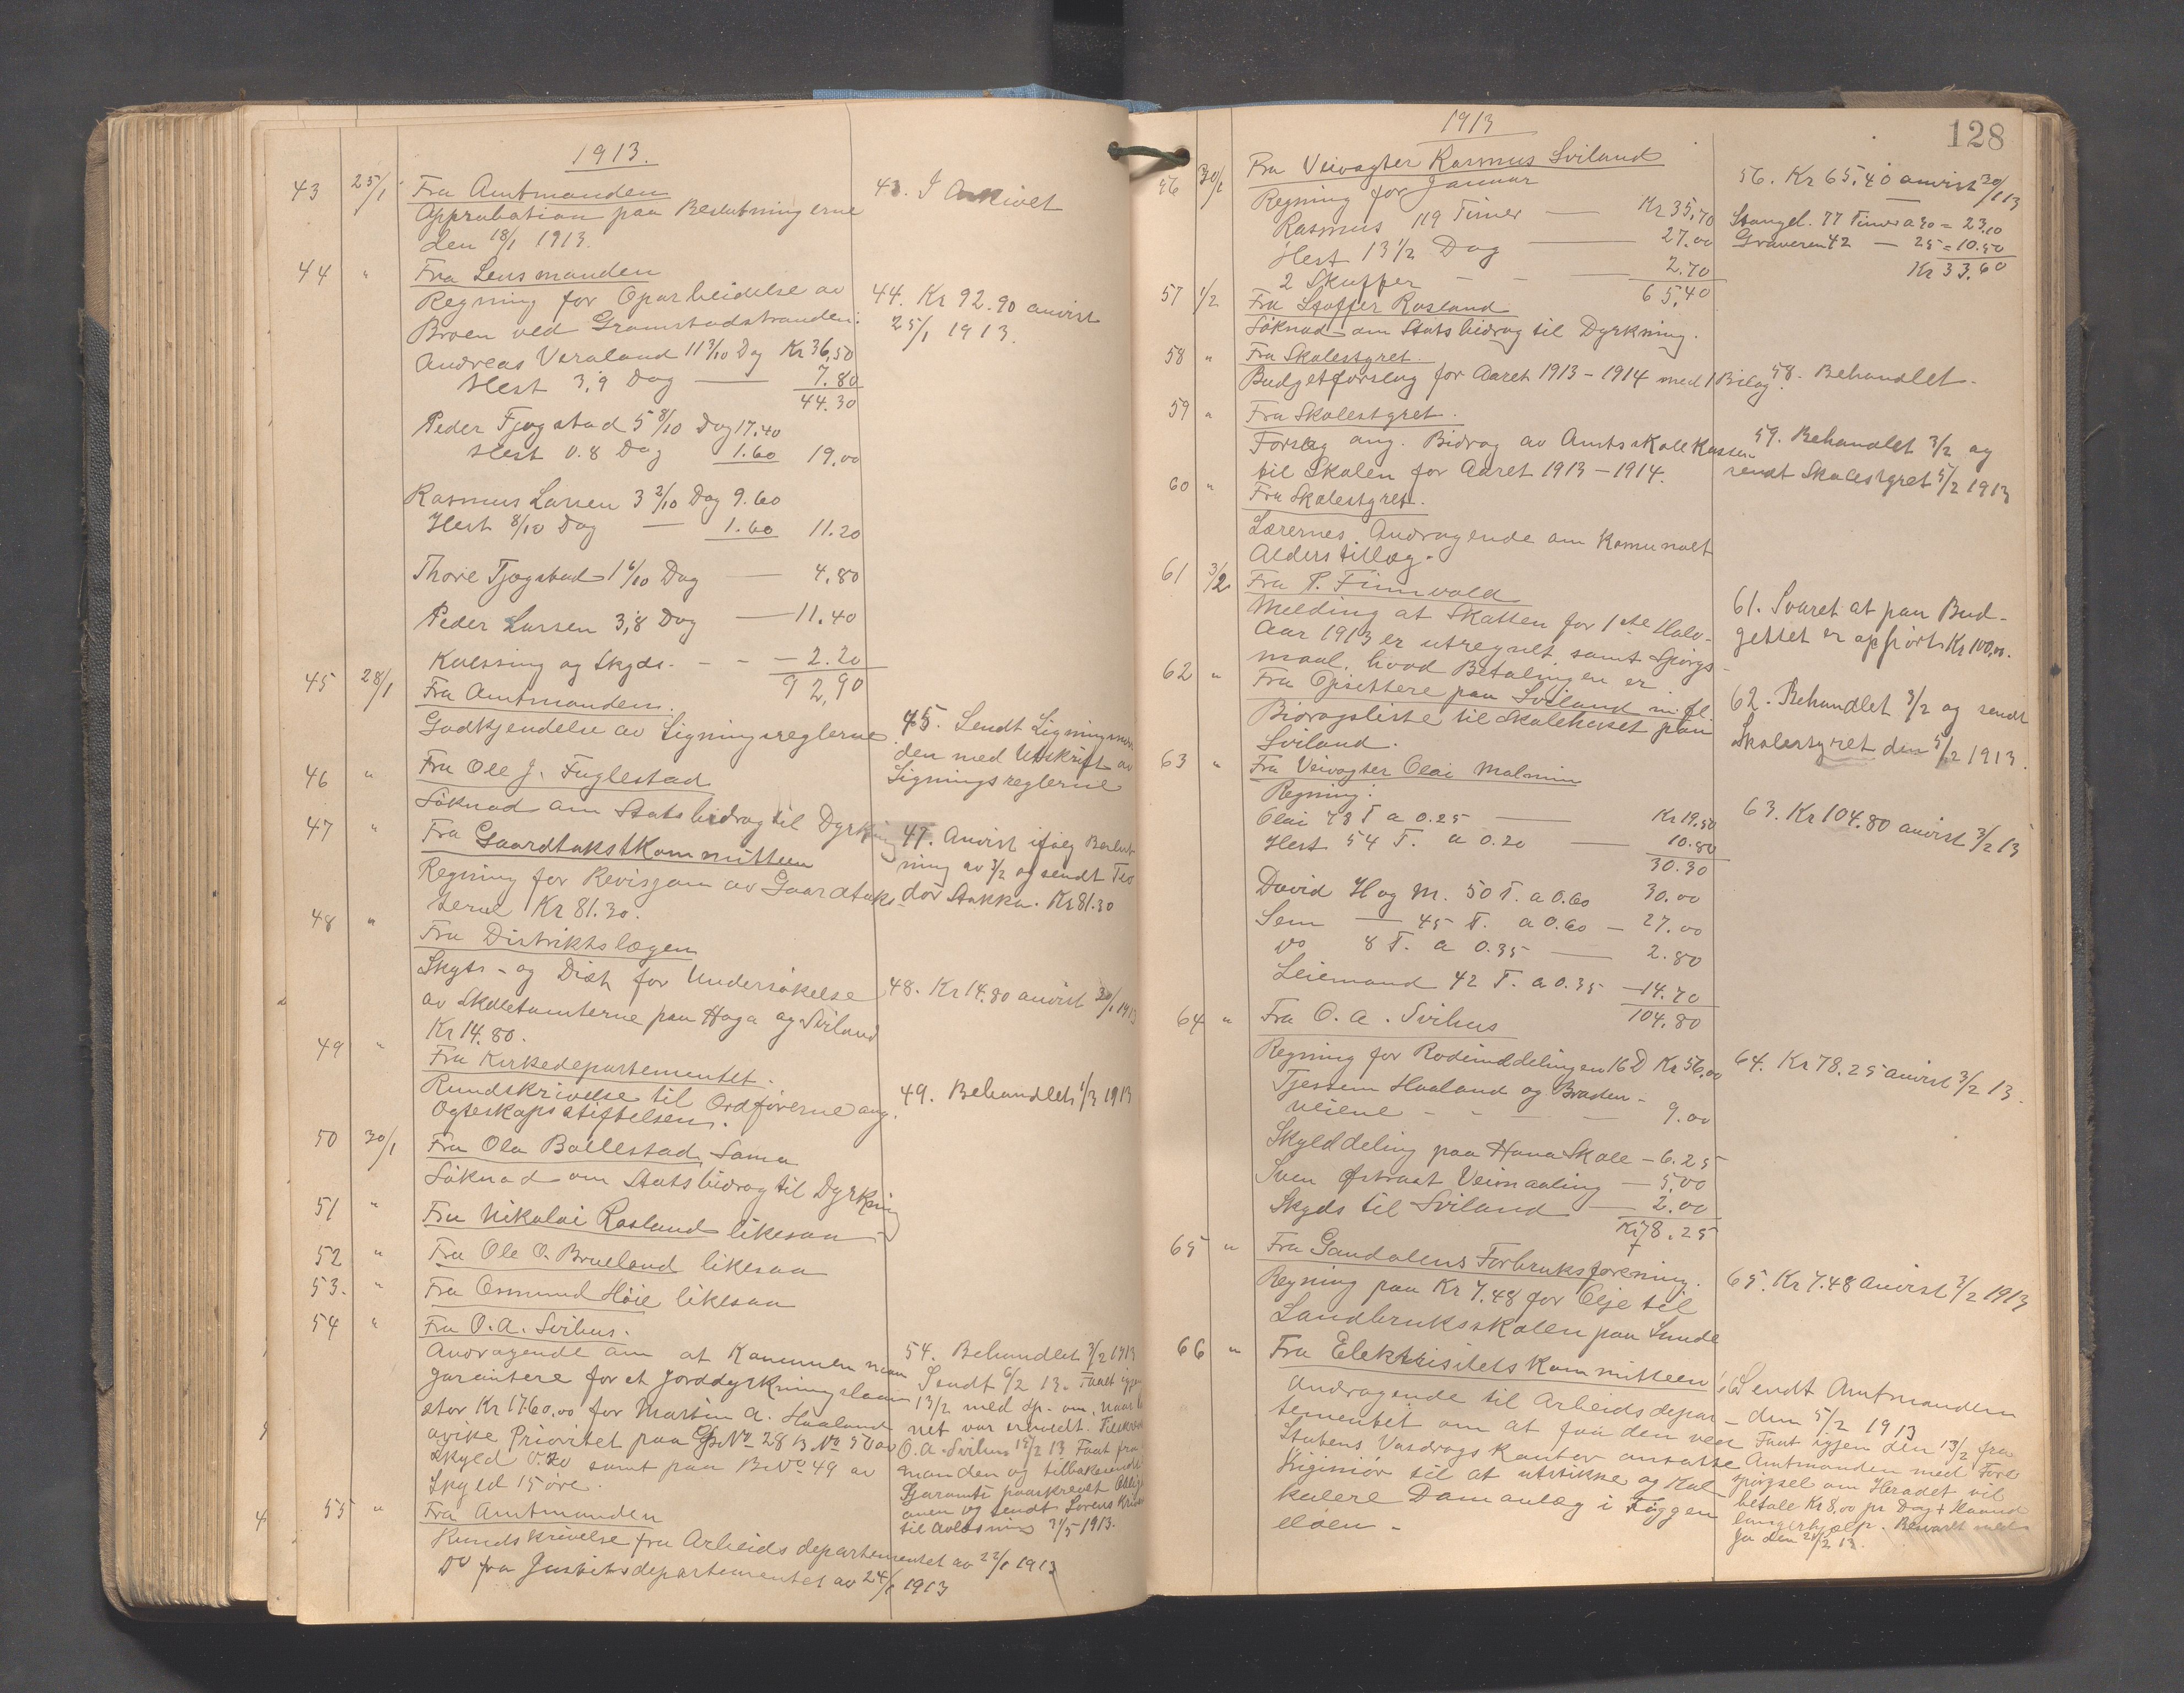 1913.
43 25/1 Fra Amtmanden
Approbation paa Beslutningerne
den 18/1 1913.
43. I Arkivet
44 " Fra Lensmanden
Regning for Oparbeidelse av
Broen ved Gramstadstranden:
Andreas Veraland 11 3/10 Dag Kr 36,50
Hest 3,9 Dag — 7.80
44.30
Peder Fjogstad 5 8/10 Dag 17.40
Hest 0.8 Dag 1.60 19.00
Rasmus Larsen 3 2/10 Dag 9.60
Hest 8/10 Dag — 1.60 11.20
Thore Tjogstad 1 6/10 Dag — 4.80
Peder Larsen 3,8 Dag — 11.40
Kvessing og Skyds - - — 2.20
92,90
44. Kr 92.90 anvist
25/1 1913.
45 28/1 Fra Amtmanden.
Godkjendelse av Ligningsreglerne
45. Sendt
den med Utskrift av
Ligningsreglerne
46 " Fra Ole J. Fuglestad
Söknad om Statsbidrag til Dyrkning
47 " Fra Gaardtakstkommitteen
Regning for Revisjon av Gaardtaks-
terne Kr 81.30.
47. Anvist ifølg Beslut
ning av 3/2 og sendt Teo
dor Stokka. Kr 81.30
48 " Fra Distriktslægen
Skyds- og Diæt for Undersökelse
av Skoletomterne paa Hoga og Sviland
Kr 14.80.
48. Kr 14.80 anvist 30/1 1913
49 " Fra Kirkedepartementet.
Rundskrivelse til Ordförerne ang.
Ogteskapsstiftelsen.
49. Behandlet 1/3 1913
50 30/1 Fra Ola Bollestad, Soma
Söknad om Statsbidrag til Dyrkning
51 " Fra Nikolai Rosland likesaa
52 " Fra Ole O. Brueland likesaa
53. " Fra Osmund Høie likesaa
54 " Fra O. A. Svihus.
Andragende om at Kommunen maa
garantere for et Jorddyrkningslaan
stor Kr 1760,00 for Martin A. Haaland
avike Prioritet paa G No 28 B No 50 av
Skyld 0.20 samt paa B No 49 av
Skyld 15 øre.
54. Behandlet 3/2 1913
Sendt 6/2 13. Faaet igjen
13/2 med Sp. om, naar
net var
O. A. Svihus 15/2 13 Faat fra
manden og tilbakesendt
Garanti paaskrevet
anen og sendt Lorens
til Avlösning 31/5 1913.
55 " Fra Amtmanden
Rundskrivelse fra Arbeidsdepartementet av 22/1 1913
Do fra Justitsdepartementet av 24/1 1913
1913
128
56 30/1 Fra Veivogter Rasmus Sviland
Regning for Januar
Rasmus 119 Timer — Kr 35,70
Hest 13 1/2 Dag — 27.00
2 Skuffer - - — 2.70
65,40
56. Kr 65.40 anvist 30/1 13
Stangel. 77 Timer a 30 = 23.10
Graveren 42 — 25 = 10.50
Kr 33.60
57 1/2 Fra Stoffer Rosland
Söknad om Statsbidrag til Dyrkning.
58 " Fra Skolestyret.
Budgetforslag for Aaret 1913 - 1914 med 1 Bilag.
58. Behandlet.
59 " Fra Skolestyret.
Forslag ang. Bidrag av Amtsskolekassen
til Skolen for Aaret 1913 - 1914.
59. Behandlet 3/2 og
sendt Skolestyret 5/2 1913
60 " Fra Skolestyret.
Lærernes Andragende om Komunalt
Alderstillæg.
61 3/2 Fra P. Finnvold
Melding at Skatten for 1ste Halv-
Aar 1913 er utregnet samt Spörgs-
maal, hvad Betalingen er.
61. Svaret at paa Bud-
gettet er opfört Kr 100,00.
62 " Fra Opsittere paa Sviland m.fl.
Bidragsliste til Skolehuset paa
Sviland.
62. Behandlet 3/2 og sendt
Skolestyret den 5/2 1913.
63 " Fra Veivogter Olai Malmin
Regning:
Olai 78 T a 0.25 — Kr 19,50
Hest 54 T. a 0.20 — 10.80
30.30
David H og M. 50 T. a 0.60 30.00
Sem — 45 T. a 0.60 — 27.00
Do 8 T. a 0.35 — 2.80
Leiemand 42 T. a 0.35 — 14.70
104.80
63. Kr 104.80 anvist 3/2 13
64 " Fra O. A. Svihus
Regning for Rodeinddelingen 16 D Kr 56,00
Tjessem Haaland og Braden-
veiene - - — 9.00
Skylddeling paa Hana Skole — 6.25
Sven Østraat Veimaaling — 5,00
Skyds til Sviland — 2.00
Kr 78.25
64. Kr 78.25 anvist 3/2 13.
65 " Fra Gandalens Forbruksforening.
Regning paa Kr 7.48 for Olje til
Landbruksskolen paa Lunde
65. Kr 7.48 Anvist 3/2 1913
66 " Fra Elektrisitetskommitteen
Andragende til Arbeidsdepar-
tementet om at faa den ved
Statens Vasdrags Kontor ansatte
Ingeniør til at utstikke og Kal
kulere Damanlæg i Figgen
elven -
Sendt Amtmanden
den 5/2 1913
Faat igjen den 13/2 fra
Amtmanden med Fore
spörgsel om Heradet vil
betale Kr 8,00 pr Dag + Haand
langerhjælp. Besvart med
Ja den 21/2 13.